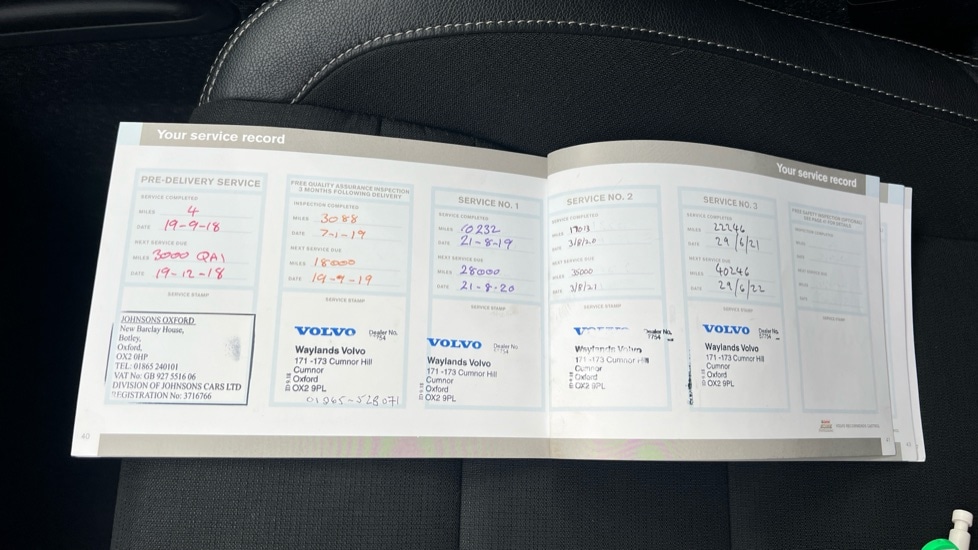 Your service record
PRE-DELIVERY SERVICE
SERVICE COMPLETED
MILES 4
DATE 19-9-18
NEXT SERVICE DUE
MILES 3000 QAI
DATE 19-12-18
SERVICE STAMP
JOHNSONS OXFORD
New Barclay House,
Botley,
Oxford,
OX2 0HP
TEL: 01865 240101
VAT No: GB 927 5516 06
DIVISION OF JOHNSONS CARS LTD
REGISTRATION No: 3716766
40
FREE QUALITY ASSURANCE INSPECTION
3 MONTHS FOLLOWING DELIVERY
INSPECTION COMPLETED
MILES 3088
DATE 7-1-19
NEXT SERVICE DUE
MILES 18000
DATE 19-9-19
SERVICE STAMP
VOLVO Dealer No.
Waylands Volvo
171 -173 Cumnor Hill
Cumnor
Oxford
OX2 9PL
01865-528071
SERVICE NO. 1
SERVICE COMPLETED
MILES 10232
DATE 21-8-19
NEXT SERVICE DUE
MILES 28000
DATE 21-8-20
SERVICE STAMP
VOLVO Dealer No
Waylands Volvo
171 -173 Cumnor Hill
Cumnor
Oxford
OX2 9PL
Your service record
SERVICE NO. 2
SERVICE COMPLETED
MILES 17013
DATE 3/8/20
NEXT SERVICE DUE
MILES 35000
DATE 3/8/21
SERVICE STAMP
Dealer No.
Waylands Volvo
171 -173 Cumnor Hill
Cumnor
Oxford
OX2 9PL
SERVICE NO. 3
SERVICE COMPLETED
MILES 22246
DATE 29/6/21
NEXT SERVICE DUE
MILES 40246
DATE 29/6/22
SERVICE STAMP
VOLVO Dealer No.
Waylands Volvo
171 -173 Cumnor Hill
Cumnor
Oxford
OX2 9PL
INSPECTION COMPLETED
MILES
DATE
NEXT SERVICE DUE
MILES
DATE
SERVICE STAMP